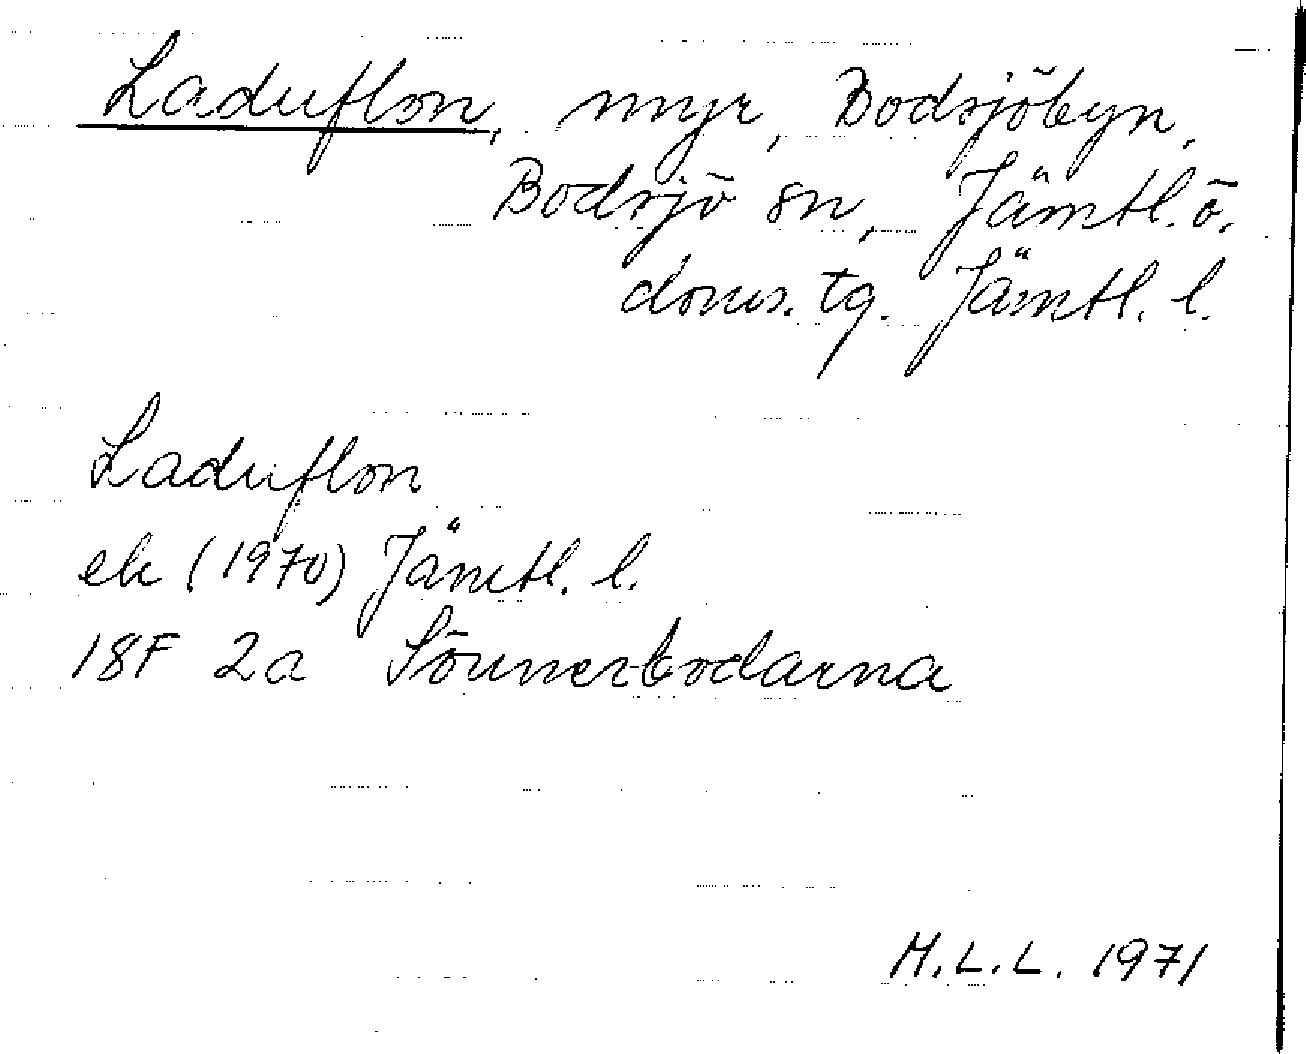 Laduflon, myr, Bodsjöbyn,
Bodsjö sn, Jämtl. ö.
doms. tg. Jämtl. l.
Laduflon
ek (1970) Jämtl. l.
18F 2a Sönnerbodarna
M.L.L. 1971